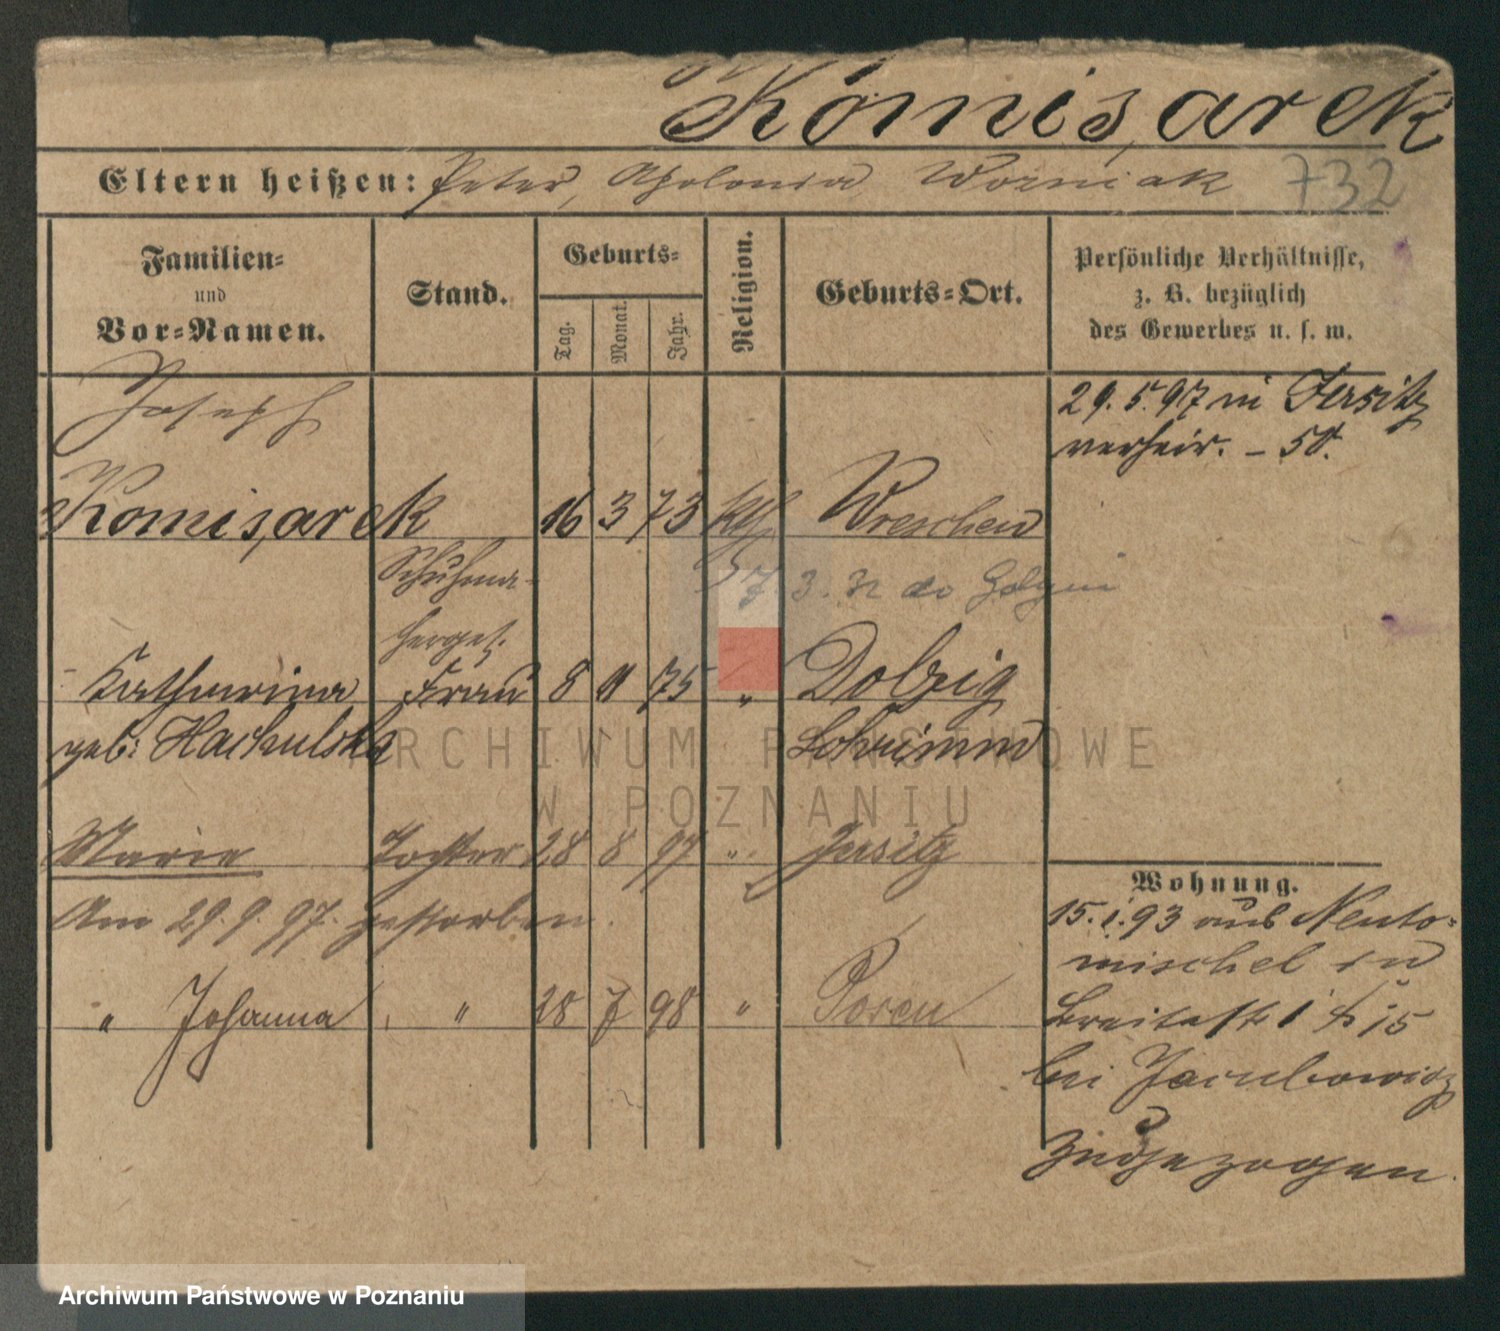 Komisarek
Eltern heißen: Peter, Apolonia Wozniak 732
Familien-
und
Vor-Namen.
Stand.
Geburts-
Tag.
Monat.
Jahr.
Religion.
Geburts-Ort.
Persönliche Verhältnisse,
z. B. bezüglich
des Gewerbes u. s. w.
Joseph
Komisarek 16 3 73 kth Wreschen
29.5.97 in Jersitz
verheir.
Schuhma-
cherges.
7.3.32 do Gdyni
Katharina Frau 8 11 75 " Dolzig
geb: Hachulska
Marie Tochter 28 8 97 " Jersitz
Am 29.9.97. gestorben.
" Johanna " 28 7 98 " Posen
Wohnung.
15.1.93 aus Neuto-
mischel in
Breitestr 15
bei Jacubowicz
zugezogen.
ARCHIWUM PAŃSTWOWE
W POZNANIU
Archiwum Państwowe w Poznaniu